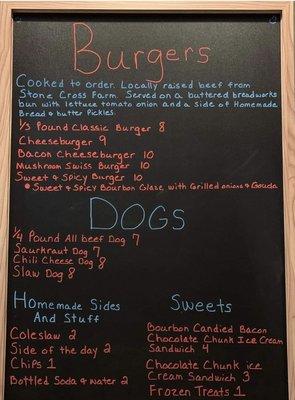 Burgers
Cooked to order. Locally raised beef from
Stone Cross Farm. Served on a buttered breadworks
bun with lettuce tomato onion and a side of Homemade
Bread & butter Pickles.
1/3 Pound Classic Burger 8
Cheeseburger 9
Bacon Cheeseburger 10
Mushroom Swiss Burger 10
Sweet & Spicy Burger 10
Sweet & Spicy Bourbon Glaze with Grilled onions & Gouda
DOGS
1/4 Pound All beef Dog 7
Saurkraut Dog 7
Chili Cheese Dog 8
Slaw Dog 8
Homemade Sides
And Stuff
Coleslaw 2
Side of the day 2
Chips 1
Bottled Soda & Water 2
Sweets
Bourbon Candied Bacon
Chocolate Chunk Ice Cream
Sandwich 4
Chocolate Chunk ice
Cream Sandwich 3
Frozen Treats 1